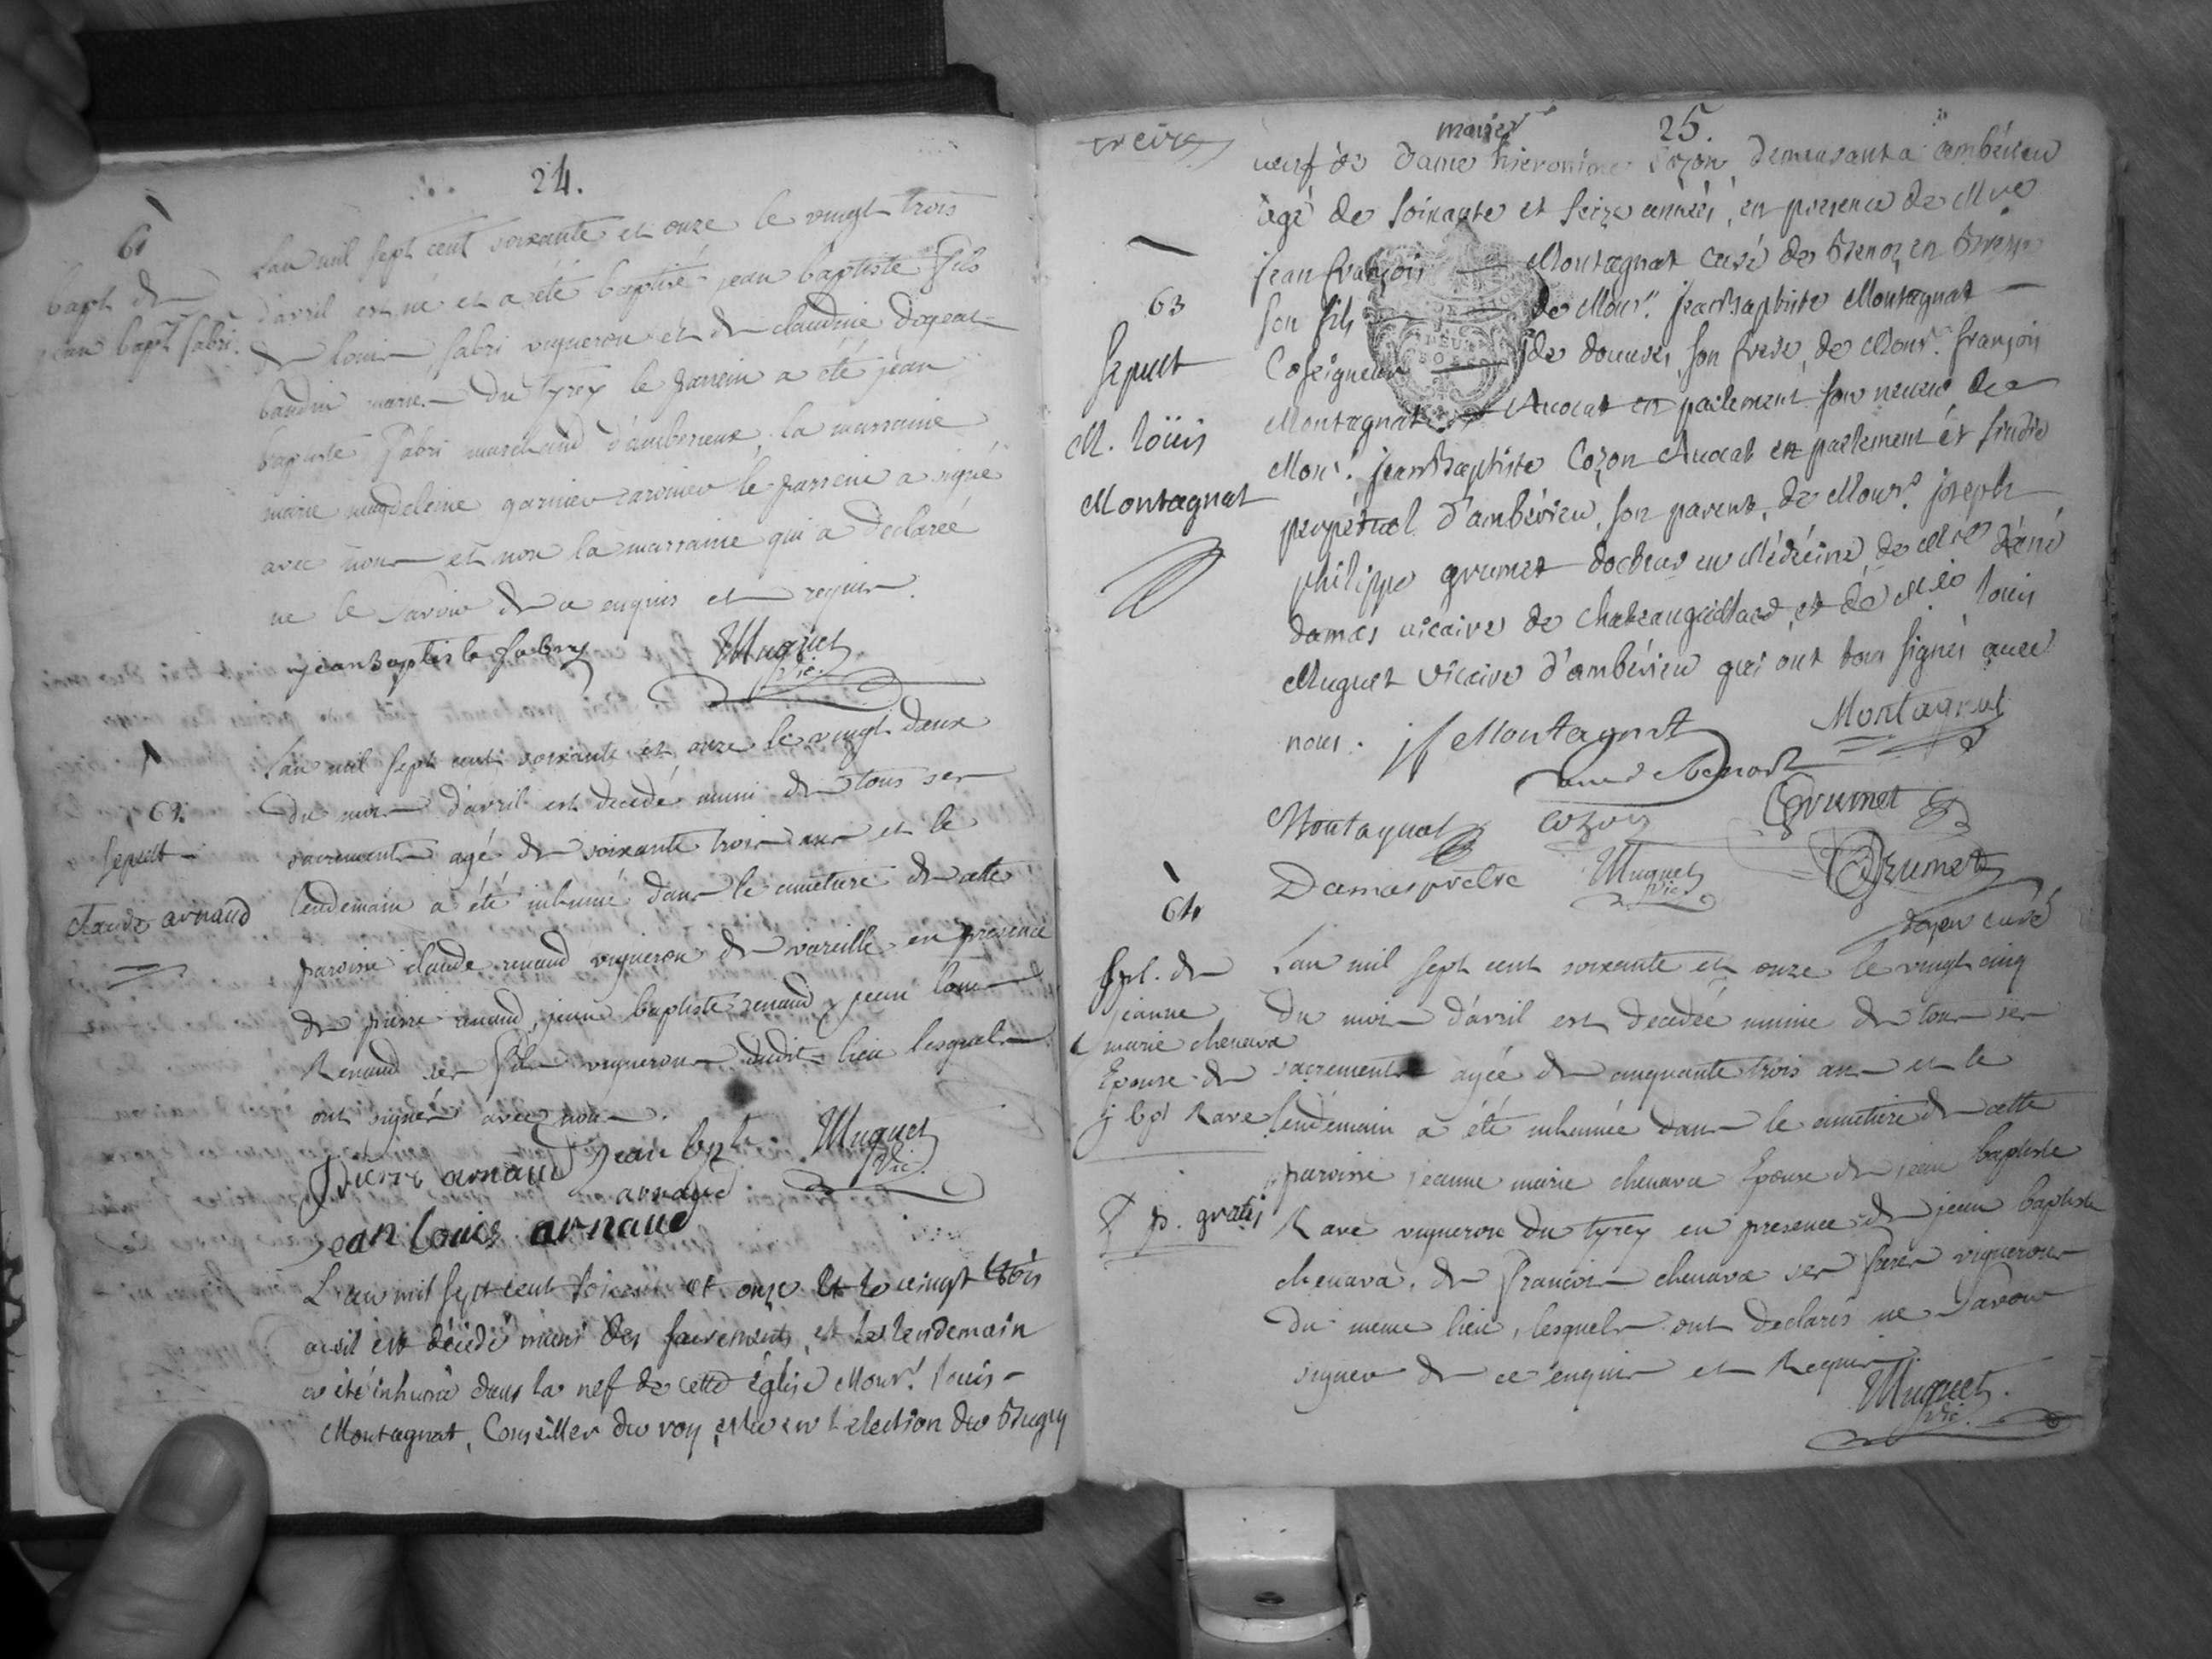 24.
61
bapt de
jean bapt fabri.
L'an mil sept cent soixante et onze le vingt trois
d'avril est né et a été baptisé jean baptiste fils
de louis fabri vigneron et de claudine
baudin mariés du tyrey le parrein a été jean
baptiste fabri marchand d'amberieux, la marraine
marie magdeleine garnier le parrein a signé
avec nous et non la marraine qui a declareé
ne le savoir de ce enquis et requis.
jean baptiste fabry Muguet
vic.
62.
sepult
claude arnaud
L'an mil sept cent soixante et onze le vingt deux
du mois d'avril est decedé muni de tous ses
sacrements agé de soixante trois ans et le
lendemain a été inhumé dans le cimetiere de cette
paroisse claude renaud vigneron de vareille en presence
de pierre renaud, jean baptiste renaud, jean louis
Renaud ses fils vignerons dudit lieu lesquels
ont signés avec nous.
Pierre arnaud jean bpt. Muguet
arnaud vic.
jean louis arnaud
L'an mil sept cent soixante et onze et le vingt trois
avril est décédé muni des sacrements, et le lendemain
a été inhumé dans la nef de cette église Monsr. louis
Montagnat, Conseiller du roy, eslu en l'election du Bugey
25.
mariés
63
sepult
M. loüis
Montagnat
veuf de Dame hieronime Cozon, demeurant a ambérieu
agé de soixante et seize années, en presence de Mre
jean françois Montagnat curé de Benoz en Bresse
son fils de Monsr. jean Baptiste Montagnat
Coseigneur de douvres, son frere, de Monsr. françois
Montagnat Avocat en parlement son neveu de
Monsr. jean Baptiste Cozon Avocat en parlement et sindic
perpétuel d'ambérieu, son parent, de Monsr. joseph
philippe grumet docteur en Médécine, de Mre
damas vicaire de chateaugaillard, et de Mre louis
Muguet vicaire d'ambérieu qui ont tous signés avec
nous. jf Montagnat Montagnat
Montagnat cozon Grumet
Damas prêtre Muguet Grumet
vic.
doyen curé
64
spl. de
jeanne
marie chenava
Epouse de
j bpt Rave
p. gratis
L'an mil sept cent soixante et onze le vingt cinq
du mois d'avril est decedée munie de tous ses
sacrements agée de cinquante trois ans et le
lendemain a été inhumée dans le cimetiere de cette
paroisse jeanne marie chenava Epouse de jean baptiste
Rave vigneron du tyrey en presence de jean baptiste
chenava, de François chenava ses freres vignerons
du meme lieu, lesquels ont declarés ne savoir
signer de ce enquis et Requis.
Muguet.
vic.